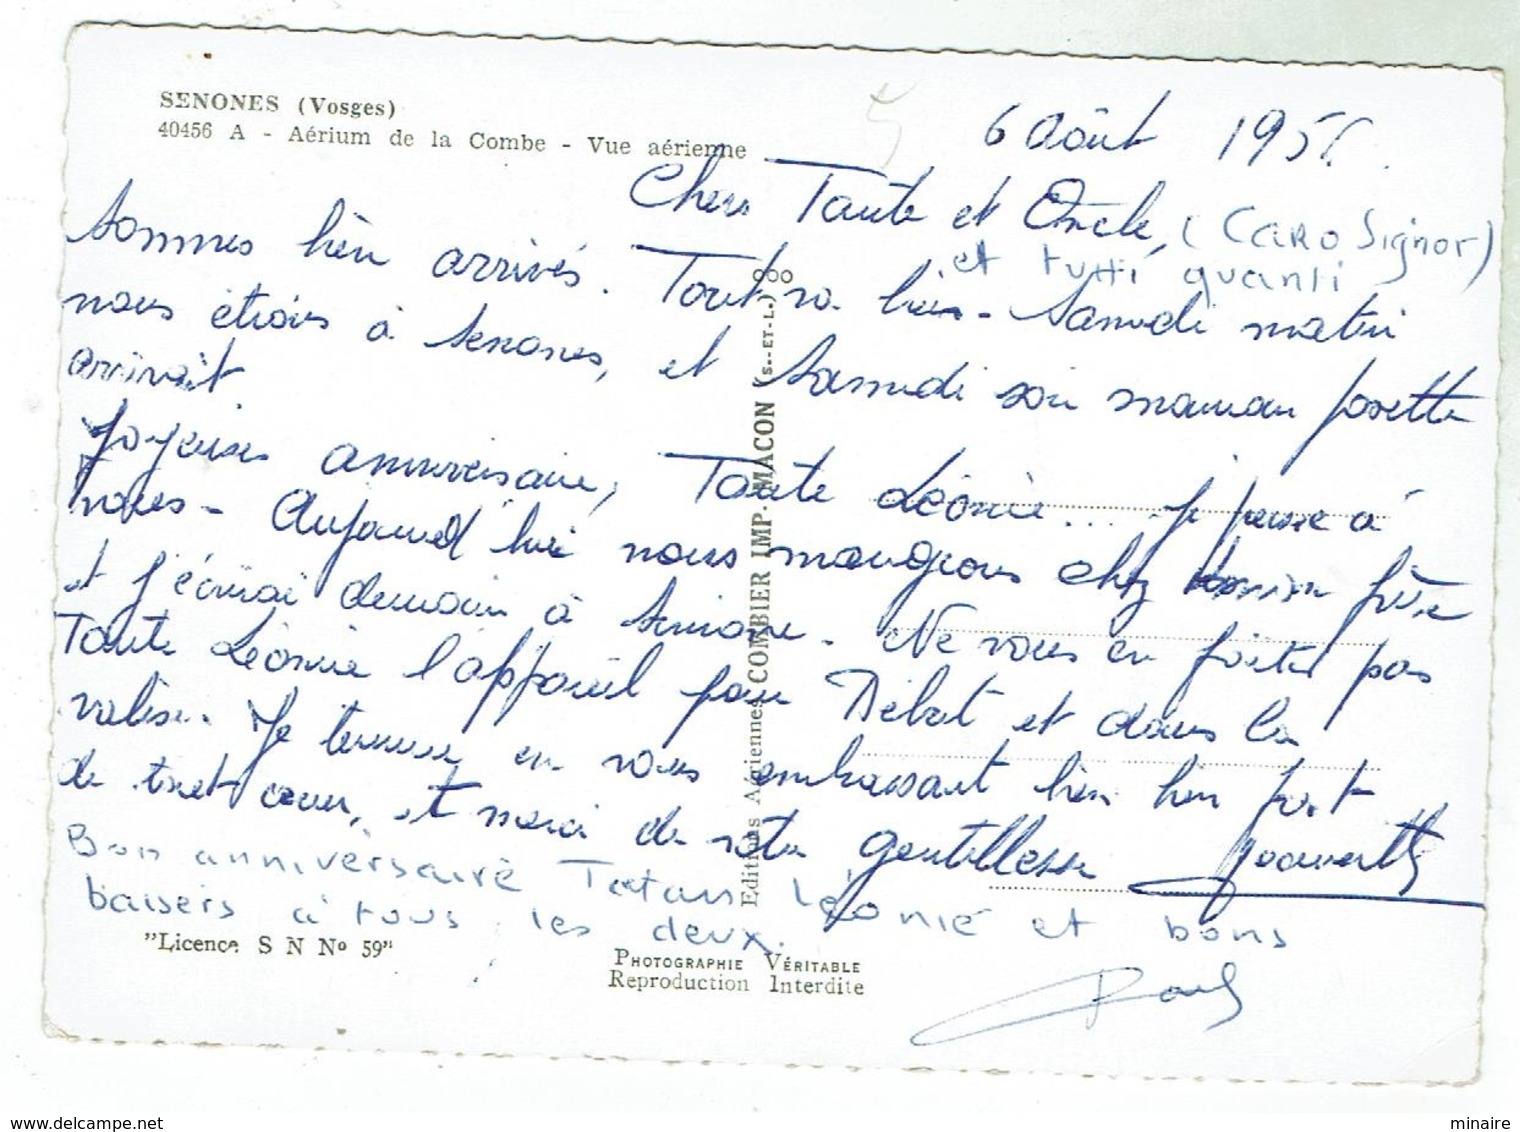 SENONES (Vosges)
40456 A - Aérium de la Combe - Vue aérienne
6 Août 195
Chers Tante et Oncle, (CARO Signor)
et tutti quanti
Sommes bien arrivés. Tout va bien - Samedi matin
nous étions à Senones, et Samedi soir maman Josette
arrivait.
Joyeuse anniversaire, Tante Léonie... je pense à
vous - Aujourd'hui nous mangions chez frère
et j'écrirai demain à Simone - Ne vous en faites pas
Tante Léonie l'appareil pour et dans la
valise. Je termine en vous embrassant bien bien fort
de tout cœur, et merci de votre gentillesse
Bon anniversaire Tatan Léonie et bons
baisers à tous les deux.
Paul
Editions Aériennes COMBIER IMP. MACON (S.-ET-L.)
"Licence S N No 59"
PHOTOGRAPHIE VÉRITABLE
Reproduction Interdite
www.delcampe.net
minaire